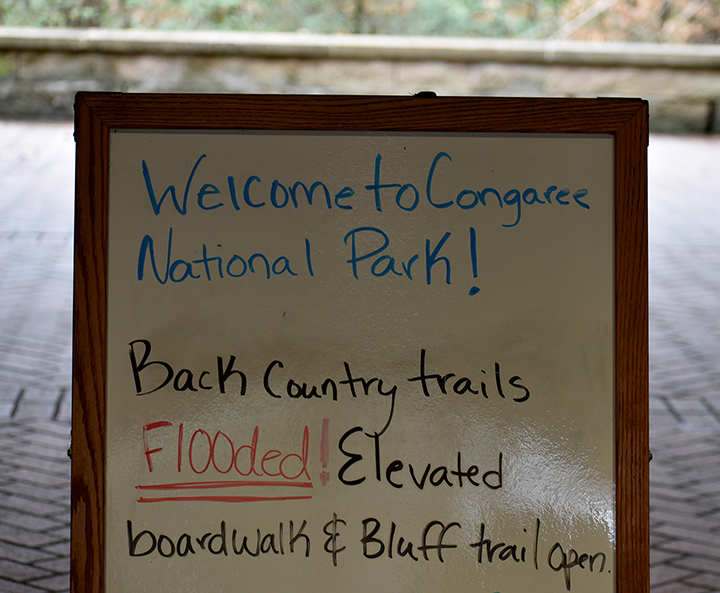 Welcome to Congaree
National Park!
Back Country trails
Flooded! Elevated
boardwalk & Bluff trail open.